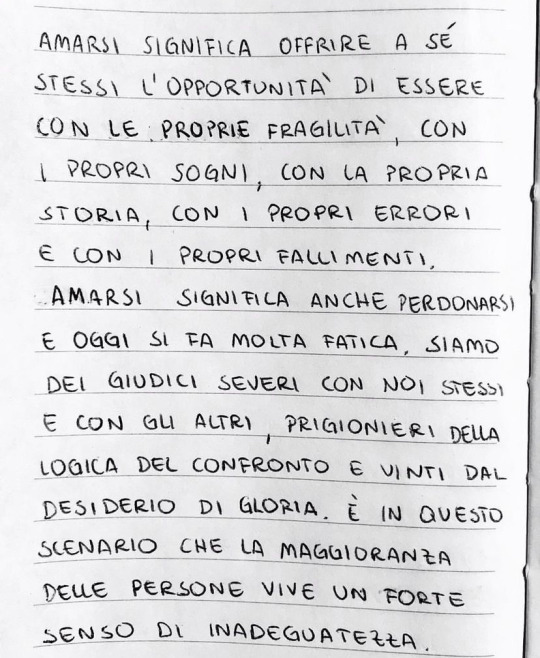 AMARSI SIGNIFICA OFFRIRE A SÉ
STESSI L'OPPORTUNITA' DI ESSERE
CON LE PROPRIE FRAGILITA', CON
I PROPRI SOGNI, CON LA PROPRIA
STORIA, CON I PROPRI ERRORI
E CON I PROPRI FALLIMENTI.
AMARSI SIGNIFICA ANCHE PERDONARSI
E OGGI SI FA MOLTA FATICA. SIAMO
DEI GIUDICI SEVERI CON NOI STESSI
E CON GLI ALTRI, PRIGIONIERI DELLA
LOGICA DEL CONFRONTO E VINTI DAL
DESIDERIO DI GLORIA. È IN QUESTO
SCENARIO CHE LA MAGGIORANZA
DELLE PERSONE VIVE UN FORTE
SENSO DI INADEGUATEZZA.